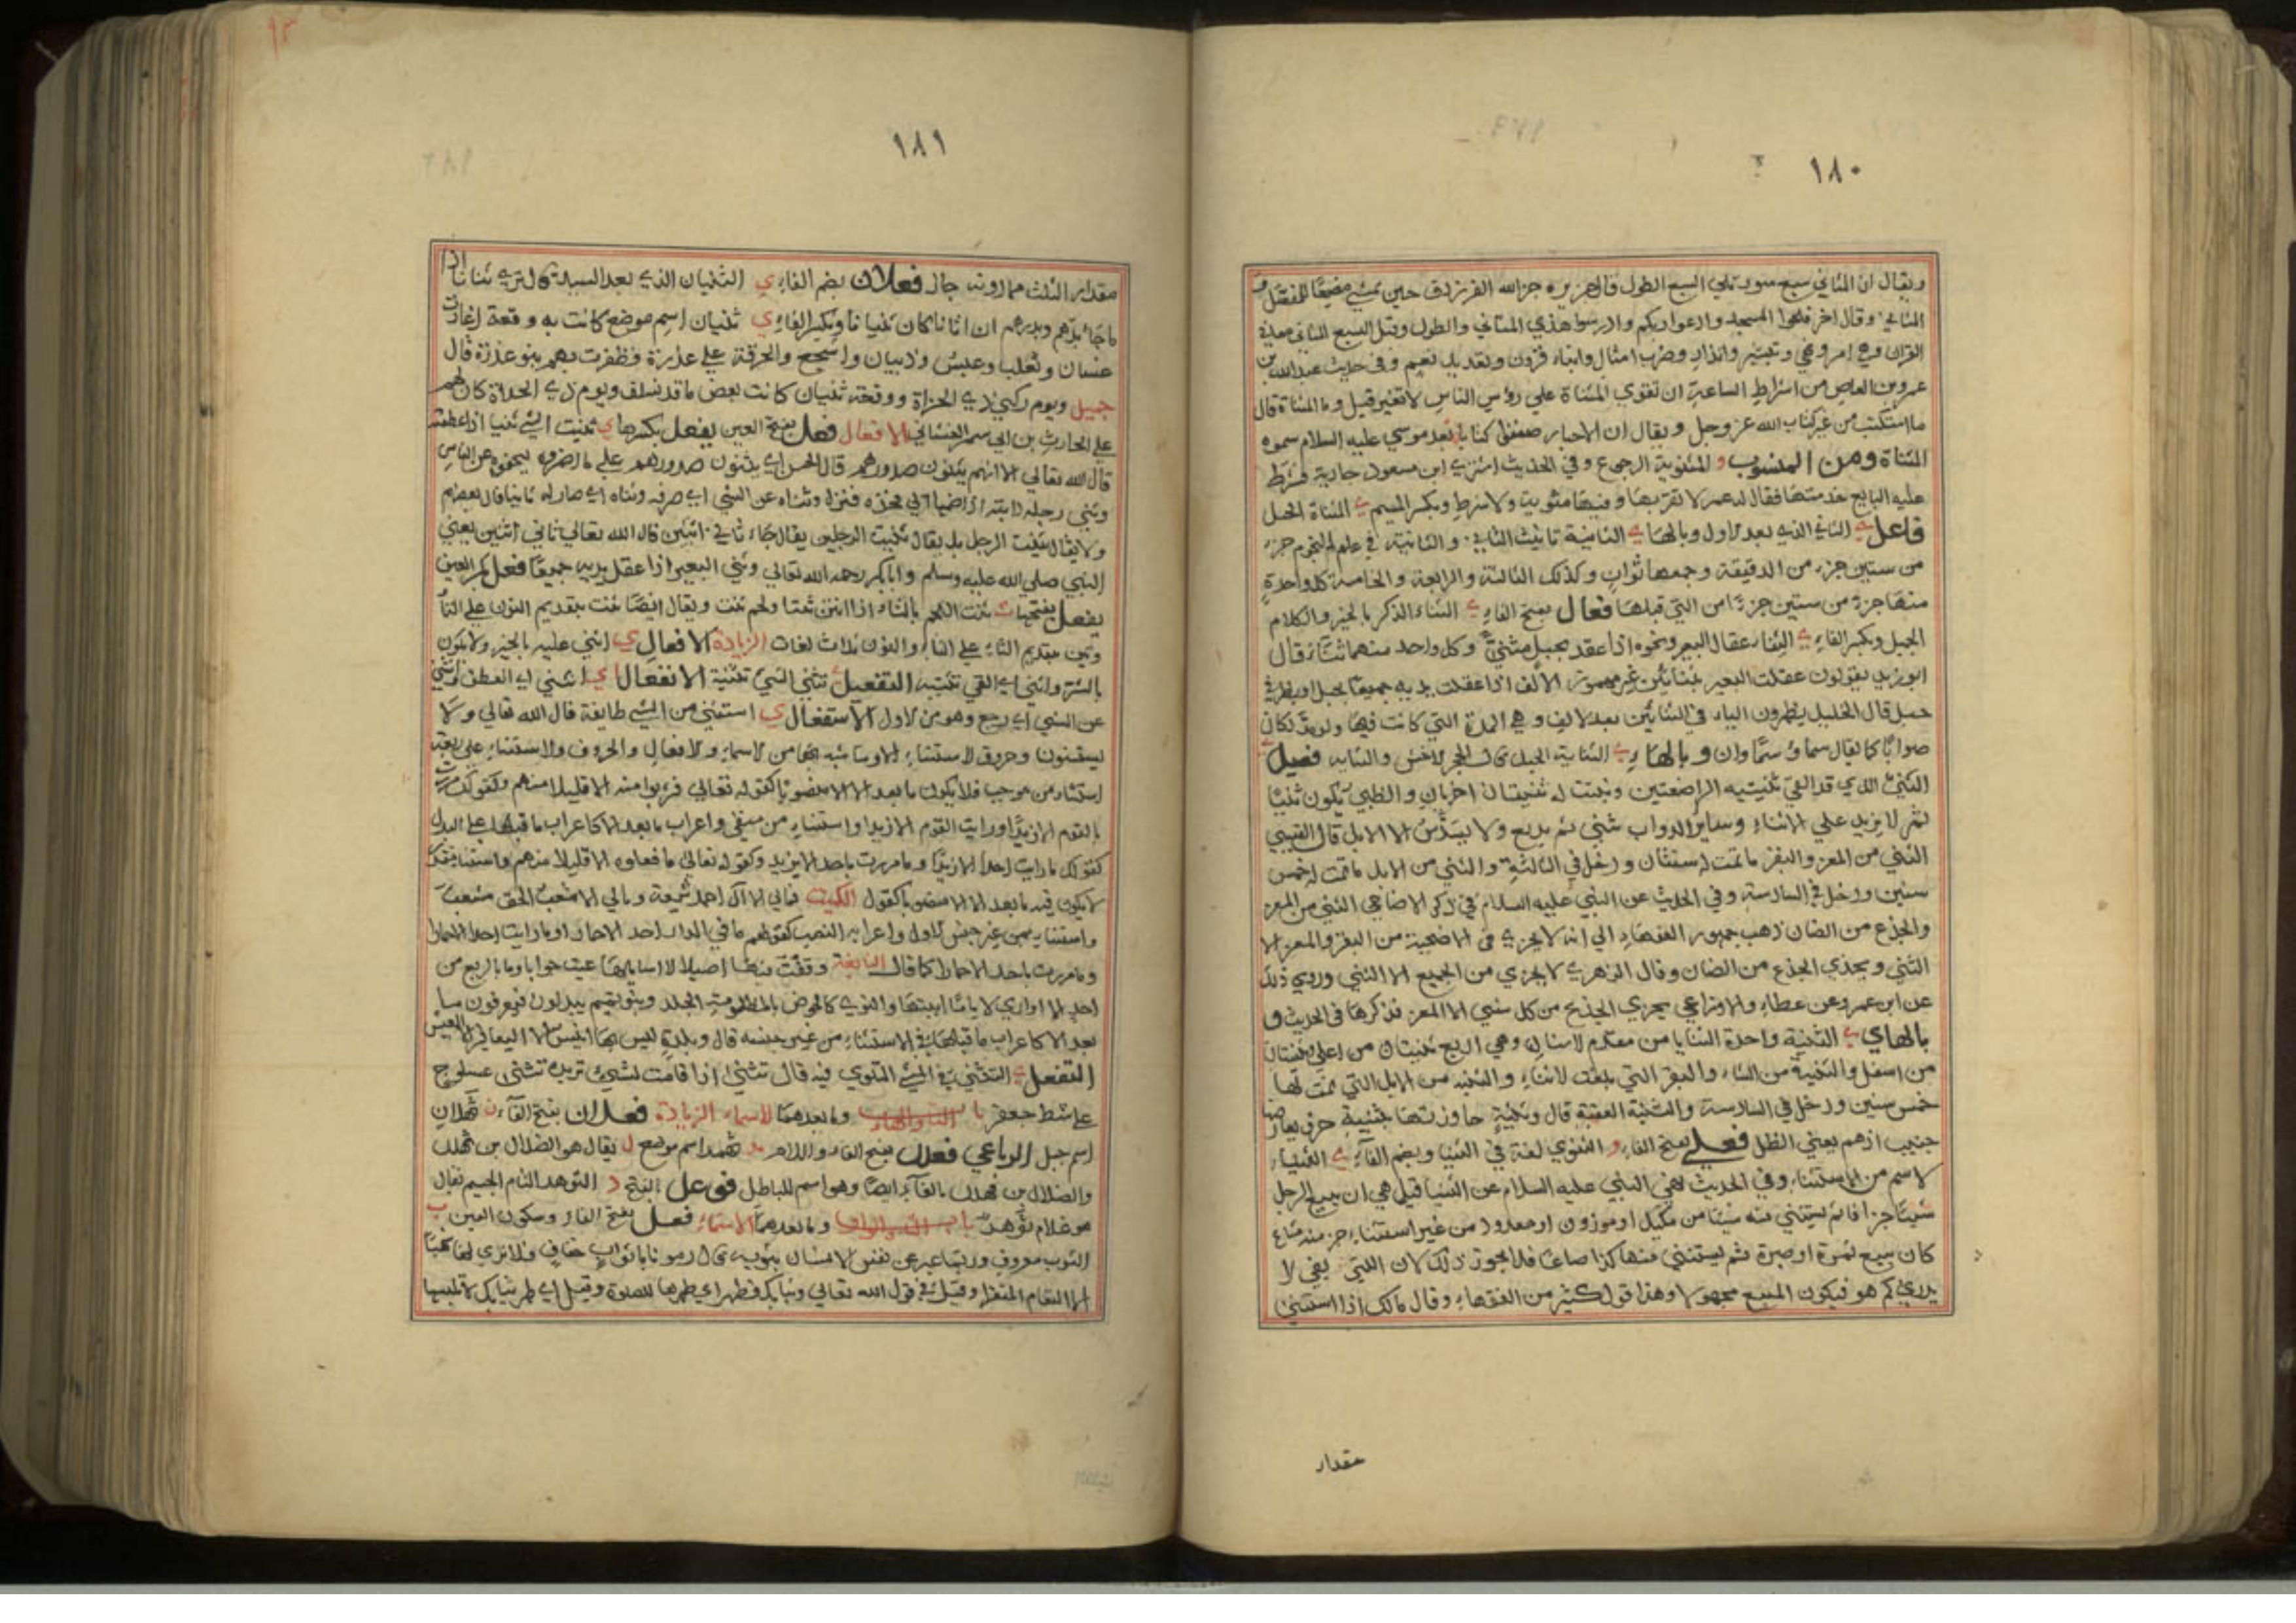 ١٨٠
ويقال ان المثاني سبع سور تلي السبع الطول قال جرير جزا الله الفرزدق حين يمسي مضيعا للمفصل و
المثاني وقال اخر فلجوا المسجد وادعوا ربكم وادرسوا هذي المثاني والطول وقيل السبع المثاني
القران وهي امر ونهي وتبشير وانذار وضرب امثال وانباء قرون وتعديد نعيم وفي حديث عبد الله بن
عمرو بن العاص من اشراط الساعة ان تقرى المثناة علي رؤس الناس لا تغير قيل وما المثناة قال
ما استكتب من غير كتاب الله عز وجل ويقال ان الاحبار صنفوا كتابا بعد موسي عليه السلام سموه
المثناة ومن المنسوب و المثنوية الرجوع وفي الحديث اشترى ابن مسعود جارية فشرط
عليه البايع خدمتها فقال له عمر لا تقربها وفيها مثنوية ولا شرط وبكسر الميم ي المثناة الحبل
فاعل ي الثاني الذي بعد الاول وبالهاء ي الثانية تانيث الثاني والثانية في علم النجوم جزء
من ستين جزء من الدقيقة وجمعها ثوان وكذلك الثالثة والرابعة والخامسة كل واحدة
منها جزء من ستين جزءًا من التي قبلها فعال بفتح الفاء ي الثناء الذكر بالخير والكلام
الجميل وبكسر الفاء ي الثناء عقال البعير ونحوه اذا عقد بحبل مثني وكل واحد منهما ثناء قال
ابو زيد يقولون عقلت البعير بثنايين غير مهموز الالف اذا عقلت يديه جميعا بحبل او بطرفي
حبل قال الخليل يظهرون الياء في الثنايين بعد الالف وهي المدة التي كانت فيها ولو مد لكان
صوابًا كما يقال سماء وسماوان وبالهاء ي الثناية الحبل والثنايه فعيل
الثني الذي قد القي ثنيتيه الراضعتين ونبتت له ثنيتان اخريان والظبي يكون ثنيًا
ثم لا يزيد علي الاثناء وساير الدواب ثني ثم يربع ولا يسدس الا الابل قال القتيبي
الثني من المعز والبقر ما تمت له سنتان ودخل في الثالثة والثني من الابل ما تمت له خمس
سنين ودخل في السادسة وفي الحديث عن النبي عليه السلام في ذكر الاضاحي الثني من المعز
والجذع من الضان ذهب جمهور الفقهاء الي انه لا يجزي في الاضحية من البقر والمعز الا
الثني ويجزي الجذع من الضان وقال الزهري لا يجزي من الجميع الا الثني وروي ذلك
عن ابن عمر وعن عطاء والاوزاعي يجزي الجذع من كل شيي الا المعز فذكرها في الحديث و
بالهاي ي الثنية واحدة الثنايا من مقدم الاسنان وهي اربع ثنيتان من اعلي وثنيتان
من اسفل والثنية من الشاء والبقر التي بلغت الاثناء والثنيه من الابل التي تمت لها
خمس سنين ودخل في السادسة والثنية العقبة قال وثنية جاوزتها بثنية حرف يعارضها
جنيب ادهم يعني الظل فعلي بفتح الفاء و الثنوي لغة في الثنيا وبضم الفاء ي الثنياء
الاسم من الاستثناء وفي الحديث نهي النبي عليه السلام عن الثنيا قيل هي ان يبيع الرجل
شيئا جزافا ثم يستثني منه شيئا من مكيل او موزون او معدود من غير استثناء جزء منه مشاع
كان يبيع ثمرة او صبرة ثم يستثني منها كذا صاعًا فلا يجوز ذلك لان الذي بقي لا
يدري كم هو فيكون المبيع مجهولا وهذا قول كثير من الفقهاء وقال مالك اذا استثني
مقدار
١٨١
مقدار الثلث مما دونه جاز فعلان بضم الفاء ي الثنيان الذي بعد السيد قال تري ثنانا اذا
ما جاء بدأهم وبدؤهم ان اتانا كان ثنيانا وبكسر الفاء ي ثنيان اسم موضع كانت به وقعة اغارت
غسان وتغلب وعبس وذبيان واشجع والحرقة علي عذرة فظفرت بهم بنو عذرة قال
جميل ويوم ركي ذي الجزاة ووقعة ثنيان كانت بعض ما قد نسلف ويوم ذي الحداة كان لهم
علي الحارث بن ابي شمر الغساني الافعال فعل بفتح العين يفعل بكسرها ي ثنيت الشي ثنيا اذا عطفته
قال الله تعالي الا انهم يثنون صدورهم قال الحسن اي يثنون صدورهم علي ما اضمروه ليخفوه عن الناس
وثني رجله دابته اذا ضمها الي فخذه فنزل وثناه عن الشي اي صرفه وثناه اي صار له ثانيا قال بعضهم
ولا يقال ثنيت الرجل بل يقال ثنيت الرجلين يقال جاء ثاني اثنين قال الله تعالي ثاني اثنين يعني
النبي صلي الله عليه وسلم وابا بكر رحمه الله تعالي وثني البعير اذا عقل يديه جميعًا فعل بكسر العين
يفعل بفتحها ت ثنت اللحم بالتاء اذا انتن ثنتا ولحم ثنت ويقال ايضًا نثت بتقديم النون علي الثاء
وتثن بتقديم الثاء علي التاء والنون ثلاث لغات الزيادة الافعال ي اثني عليه بالخير ولا يكون
بالشر واثني اي القي ثنيته التفعيل ي ثني الشيء تثنية الانفعال ي انثني اي انعطف وانثني
عن الشي اي رجع وهو من الاول الاستفعال ي استثني من الشي طايفة قال الله تعالي ولا
يستثنون وحروف الاستثناء الا وما شبه بها من الاسماء والافعال والحروف والاستثناء علي اربعة
استثناء من موجب فلا يكون ما بعد الا الا منصوبًا كقوله تعالي فشربوا منه الا قليلا منهم وكقولك مررت
بالقوم الا زيدًا ورايت القوم الا زيدا واستثناء من منفي واعراب ما بعد الا كاعراب ما قبلها علي البدل
كقولك ما رايت احدًا الا زيدًا وما مررت باحد الا بزيد وكقوله تعالي ما فعلوه الا قليلا منهم واستثناء مقدم
لا يكون فيه ما بعد الا الا منصوبا كقول الكميت فمالي الا آل احمد شيعة ومالي الا مشعب الحق مشعب
واستثناء من غير جنس الاول واعرابه النصب كقولهم ما في الدار احد الا حمار او ما رايت احدا الا حمارا
وما مررت باحد الا حمارا كما قال النابغة وقفت فيها اصيلا لا اسايلها عيت جوابا وما بالربع من
احد الا اواري لايا ما ابينها والنوي كالحوض بالمظلومة الجلد وبنو تميم يبدلون فيعرفون ما
بعد الا كاعراب ما قبلها في الاستثناء من غير جنسه قال وبلدة ليس بها انيس الا اليعافير والا العيس
التفعل ي التثني في المشي التلوي فيه قال تثني اذا قامت لشيء تريده تثني عسلوج
علي شط جعفر باب الثاء والهاء وما بعدهما الاسماء الزيادة فعلان بفتح الفاء ن ثهلان
اسم جبل الرباعي فعلل بفتح الفاء واللام مد ثهمد اسم موضع ل يقال هو الضلال بن ثهلل
والضلال بن فهلل بالفاء ايضًا وهو اسم للباطل فوعل الفتح د الثوهد التام الجسيم يقال
هو غلام ثوهد باب الثاء والواو وما بعدهما الاسماء فعل بفتح الفاء وسكون العين ب
الثوب معروف وربما عبر عن نفس الانسان بثوبه قال رموها باثواب خفاف فلا تري لها شبها
الا النعام المنفرا وقيل في قول الله تعالي وثيابك فطهر اي طهرها للصلوة وقيل اي طهر ثيابك لا تلبسها